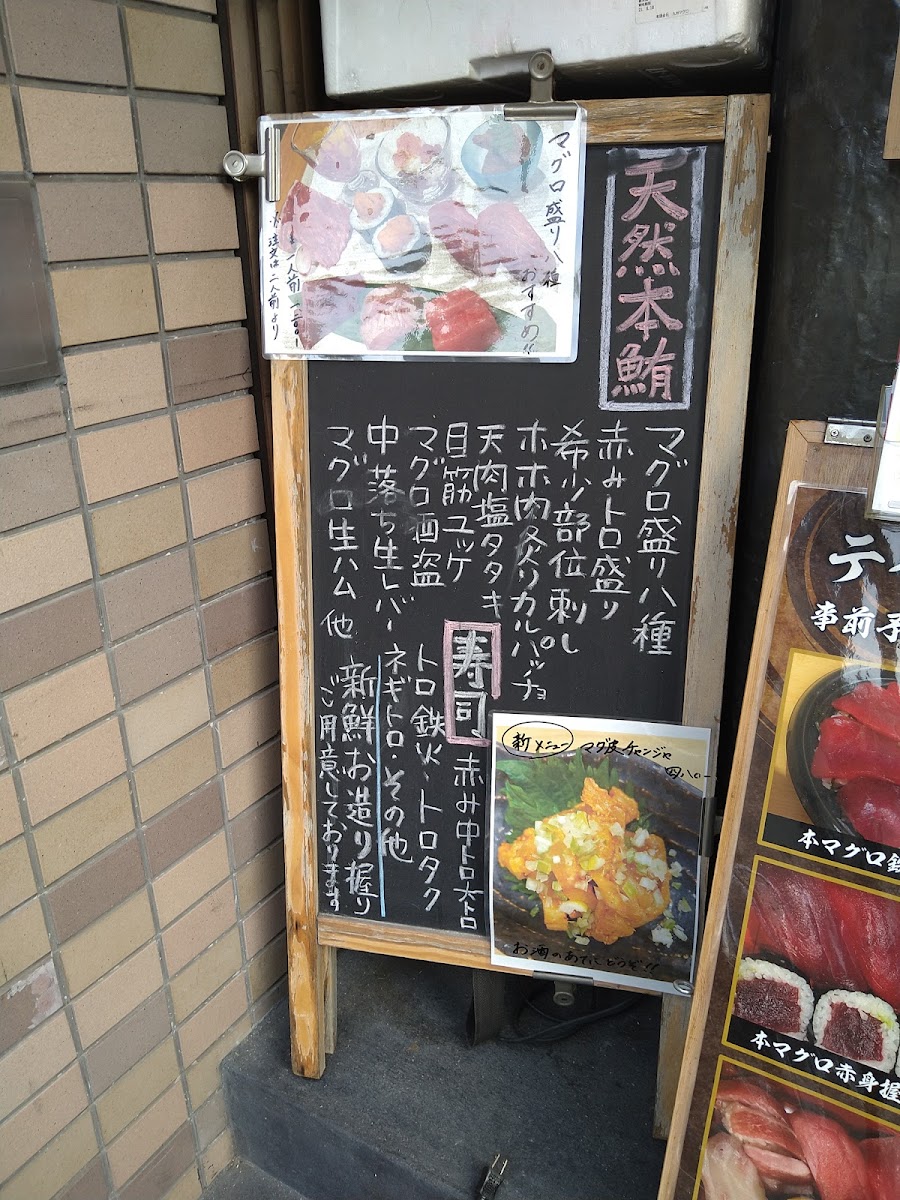 天然本鮪
マグロ盛り八種
赤みトロ盛り
希少部位刺し
ホホ肉炙りカルパッチョ
天肉塩タタキ
目筋ユッケ
マグロ酒盗
中落ち生レバー
マグロ生ハム 他
寿司
赤み中トロ大トロ
トロ鉄火・トロタク
ネギトロ・その他
新鮮お造り握り
ご用意しております
マグロ盛り八種
おすすめ!!
注文は二人前より
新メニュー
マグ皮チャンジャ
四八〇ー
お酒のあてにどうぞ!!
テイ
事前予
本マグロ鉄
本マグロ赤身握